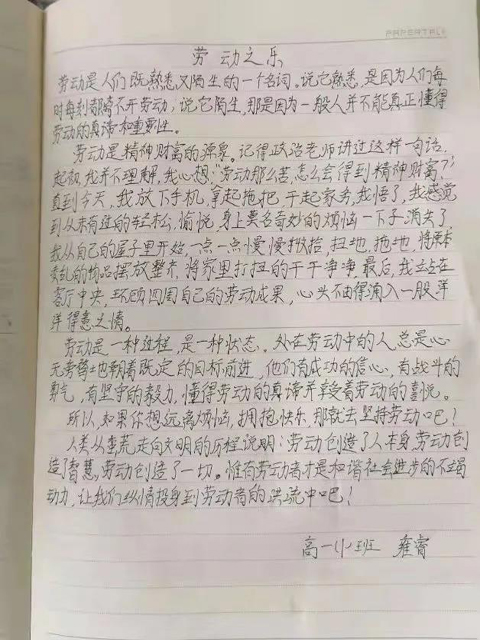 劳动之乐
劳动是人们既熟悉又陌生的一个名词。说它熟悉,是因为人们每
时每刻都离不开劳动,说它陌生,那是因为一般人并不能真正懂得
劳动的真谛和重要性。
劳动是精神财富的源泉。记得政治老师讲过这样一句话,
起初,我并不理解,我心想:"劳动那么苦,怎么会得到精神财富?"
直到今天,我放下手机,拿起拖把,干起家务,我悟了,我感觉
到从未有过的轻松,愉悦,身上莫名奇妙的烦恼一下子消失了
我从自己的屋子里开始,一点一点慢慢收拾,扫地,拖地,将原本
杂乱的物品摆放整齐,将家里打扫的干干净净,最后,我站在
客厅中央,环顾四周自己的劳动成果,心头不由得涌入一股洋
洋得意之情。
劳动是一种过程,是一种状态。处在劳动中的人总是心
无旁骛地朝着既定的目标前进,他们有成功的信心,有战斗的
勇气,有坚守的毅力,懂得劳动的真谛并享受着劳动的喜悦。
所以,如果你想远离烦恼,拥抱快乐,那就去坚持劳动吧!
人类从蛮荒走向文明的历程说明:劳动创造了人本身,劳动创
造了智慧,劳动创造了一切。惟有劳动者才是和谐社会进步的不竭
动力,让我们纵情投身到劳动者的洪流中吧!
高一 班 雍睿